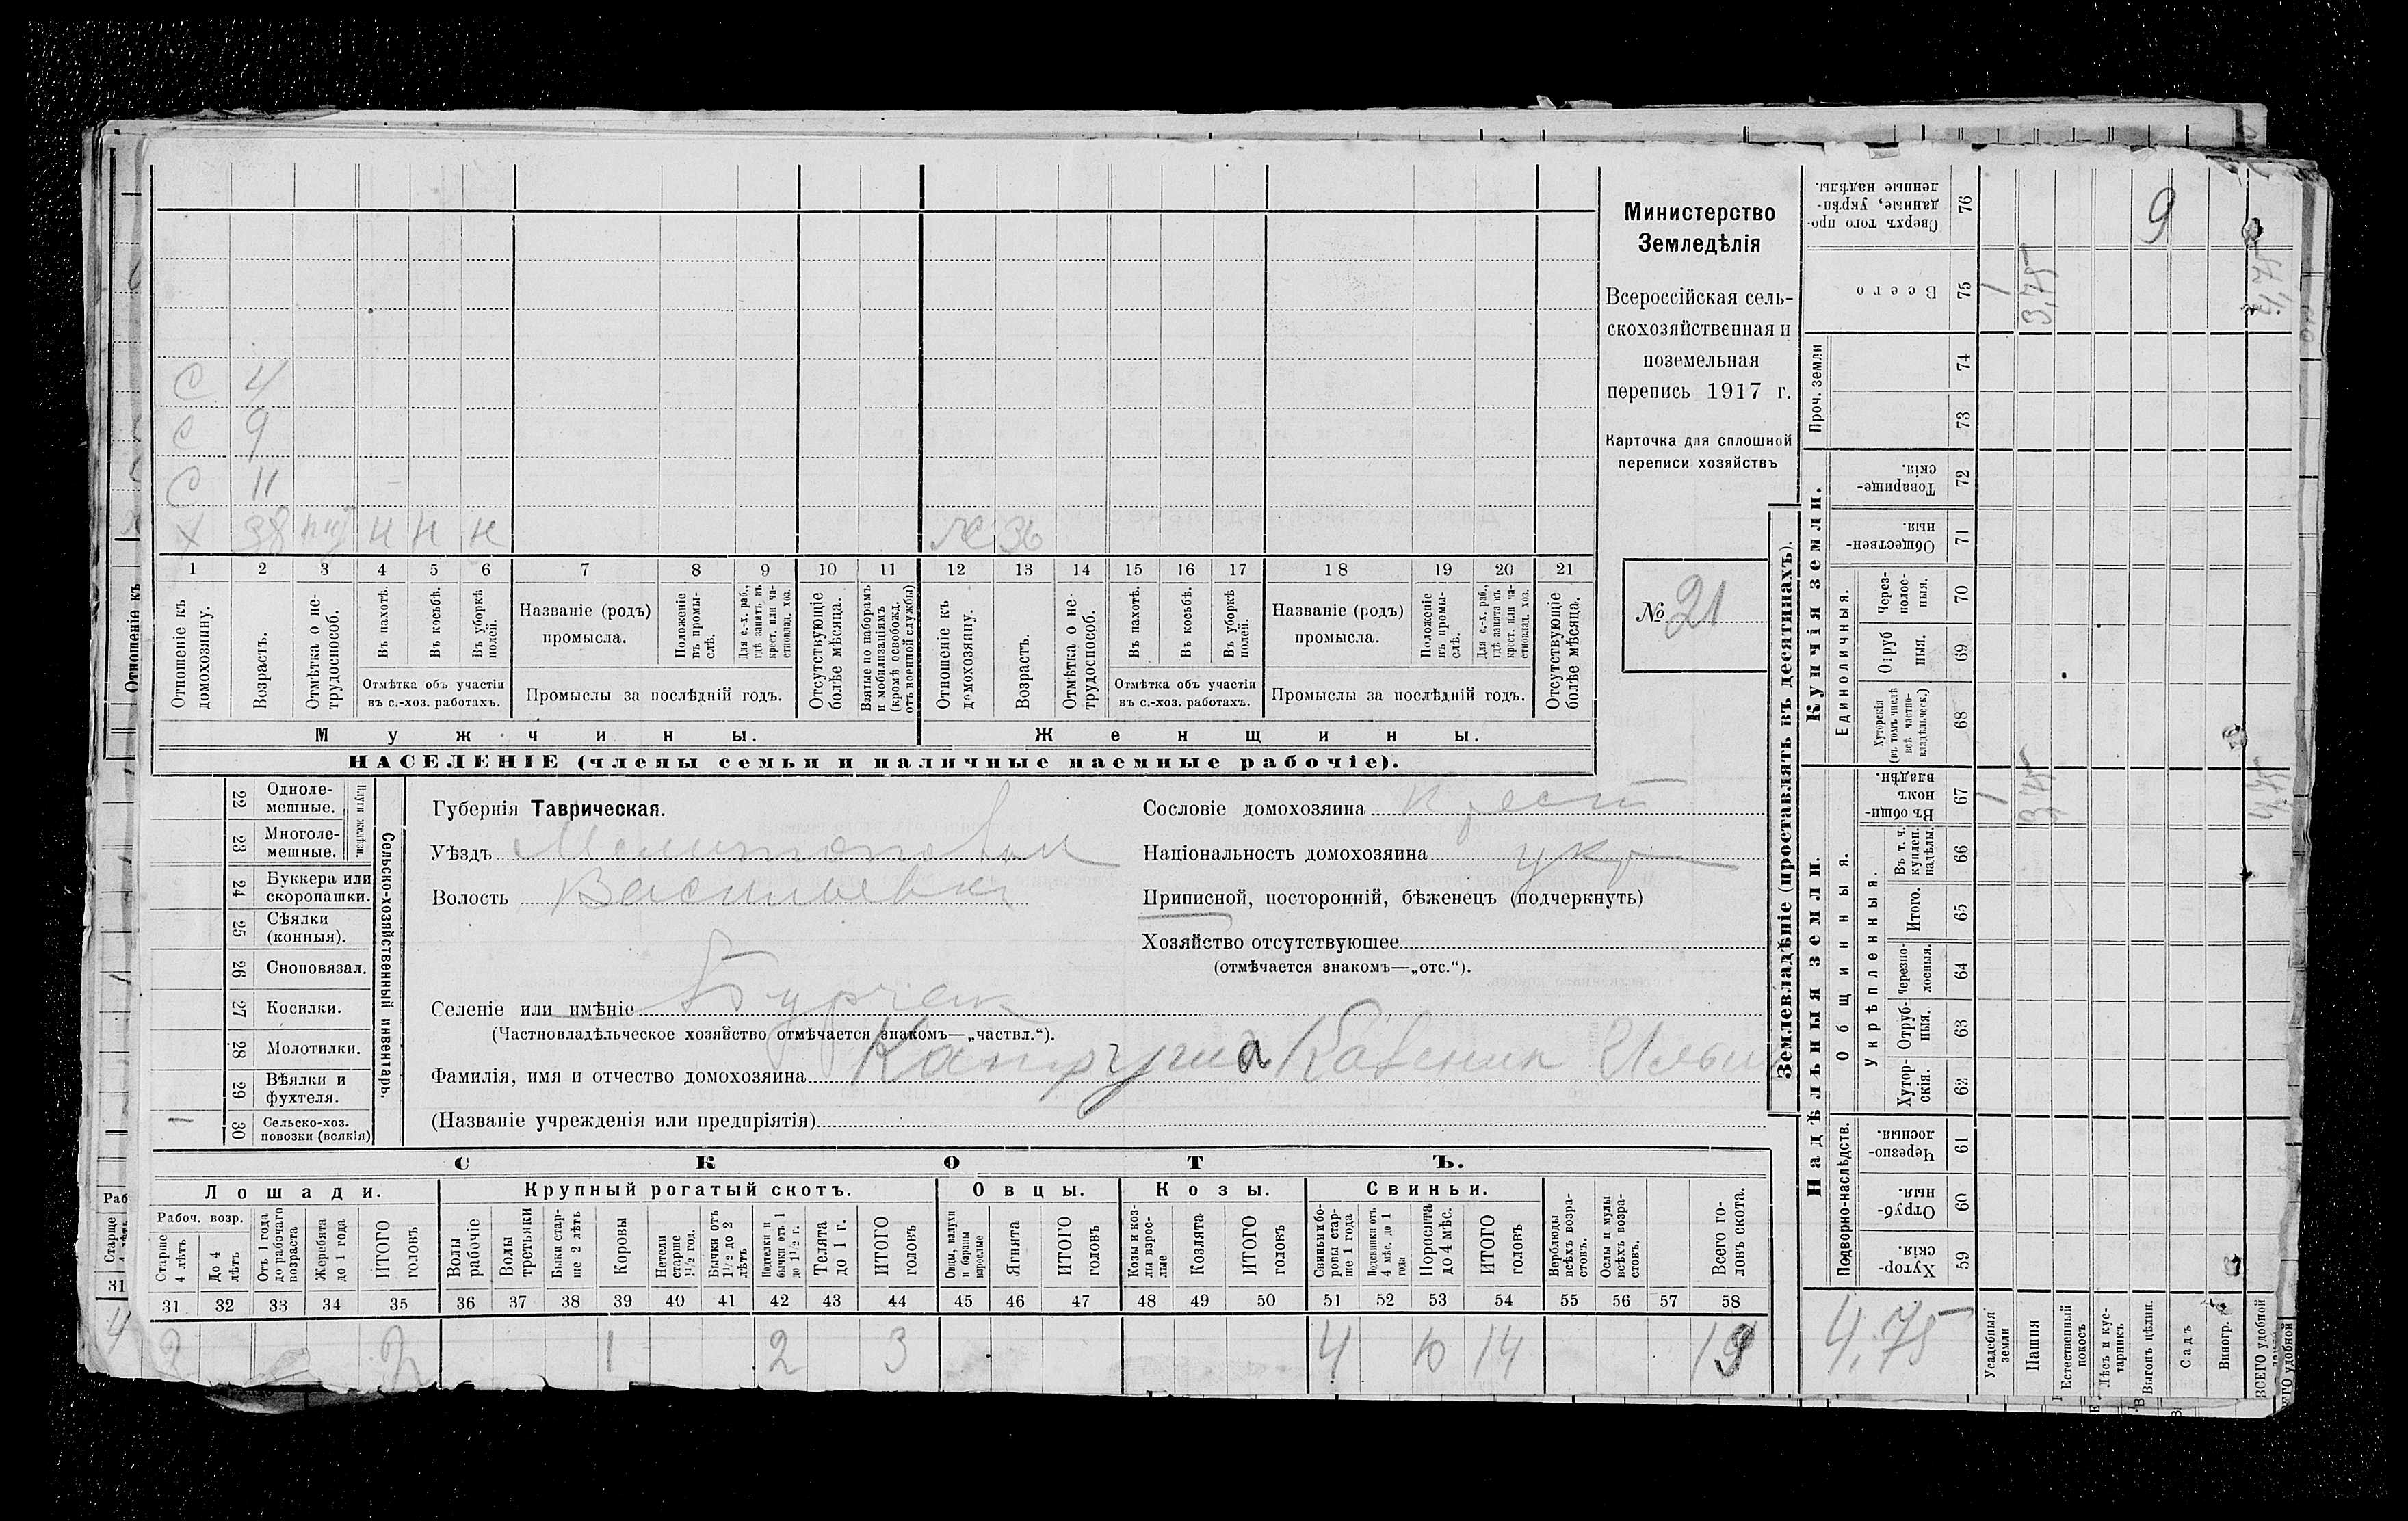 С 4
С 9
С 11
Х 38 Н Н Н Ж 36
1 2 3 4 5 6 7 8 9 10 11 12 13 14 15 16 17 18 19 20 21
Отношеніе къ домохозяину.
Возрастъ.
Отмѣтка о не-
трудоспособ.
Въ пахотѣ.
Въ косьбѣ.
Въ уборкѣ
полей.
Отмѣтка объ участіи
въ с.-хоз. работахъ.
Названіе (родъ)
промысла.
Положеніе
въ промы-
слѣ.
Для с.-х. раб.,
гдѣ занятъ въ
крест. или ча-
стновлад. хоз.
Промыслы за послѣдній годъ.
Отсутствующіе
болѣе мѣсяца.
Взятые по наборамъ
и мобилизаціямъ
(кромѣ освобожд.
отъ военной службы)
Отношеніе къ
домохозяину.
Возрастъ.
Отмѣтка о не-
трудоспособ.
Въ пахотѣ.
Въ косьбѣ.
Въ уборкѣ
полей.
Отмѣтка объ участіи
въ с.-хоз. работахъ.
Названіе (родъ)
промысла.
Положеніе
въ промы-
слѣ.
Для с.-х. раб.,
гдѣ занята въ
крест. или ча-
стновлад. хоз.
Промыслы за послѣдній годъ.
Отсутствующіе
болѣе мѣсяца.
Мужчины.
Женщины.
НАСЕЛЕНІЕ (члены семьи и наличные наемные рабочіе).
Министерство
Земледѣлія
Всероссійская сель-
скохозяйственная и
поземельная
перепись 1917 г.
Карточка для сплошной
переписи хозяйствъ
№ 21
22 Одноле-
мешные.
23 Многоле-
мешные.
Плуги желѣзн.
24 Буккера или
скоропашки.
25 Сѣялки
(конныя).
26 Сноповязал.
27 Косилки.
28 Молотилки.
29 Вѣялки и
фухтеля.
30 Сельско-хоз.
повозки (всякія)
1
Сельско-хозяйственный инвентарь.
Губернія Таврическая.
Уѣздъ Мелитопольскій
Волость Васильевка
Селеніе или имѣніе Бурчак
(Частновладѣльческое хозяйство отмѣчается знакомъ—„частвл.“).
Фамилія, имя и отчество домохозяина
(Названіе учрежденія или предпріятія)
Сословіе домохозяина крест
Національность домохозяина укр
Приписной, посторонній, бѣженецъ (подчеркнуть)
Хозяйство отсутствующее
(отмѣчается знакомъ—„отс.“).
СКОТЪ.
Лошади. Крупный рогатый скотъ. Овцы. Козы. Свиньи.
Рабоч. возр.
Старше
4 лѣтъ
До 4
лѣтъ
Отъ 1 года
до рабочаго
возраста
Жеребята
до 1 года
ИТОГО
головъ
Волы
рабочіе
Волы
третьяки
Быки стар-
ше 2 лѣтъ
Коровы
Нетели
старше
1½ год.
Бычки отъ
1½ до 2
лѣтъ
Подтелки и
бычки отъ 1
до 1½ г.
Телята
до 1 г.
ИТОГО
головъ
Овцы, валухи
и бараны
взрослые
Ягнята
ИТОГО
головъ
Козы и коз-
лы взрос-
лые
Козлята
ИТОГО
головъ
Свиньи и бо-
ровы стар-
ше 1 года
Подсвинки отъ
4 мѣс. до 1
года
Поросята
до 4 мѣс.
ИТОГО
головъ
Верблюды
всѣхъ возра-
стовъ.
Ослы и мулы
всѣхъ возра-
стовъ.
Всего го-
ловъ скота.
31 32 33 34 35 36 37 38 39 40 41 42 43 44 45 46 47 48 49 50 51 52 53 54 55 56 57 58
2 2 1 2 3 4 10 14 19
Землевладѣніе (проставлять въ десятинахъ).
Купчія земли.
Надѣльныя земли.
Сверхъ того про-
данные, укрѣп-
ленные надѣлы.
76
9
Всего
75
1 3,75 4,75
Проч. земли
74
73
Товарище-
скія.
72
Обществен-
ныя.
71
Единоличныя.
Через-
полос-
ныя.
70
Отруб
ныя.
69
Хуторскія
(въ томъ числѣ
всѣ частно-
владѣльческ.)
68
Общинныя.
Въ общи-
номъ
владѣн.
67
1 3,75 4,75
Укрѣпленныя.
Въ т. ч.
куплен.
надѣлы.
66
Итого.
65
Черезпо-
лосныя.
64
Отруб-
ныя.
63
Хутор-
скія.
62
Подворно-наслѣдств.
Черезпо-
лосныя.
61
Отруб-
ныя.
60
Хутор-
скія.
59
4,75
Усадебныя
земли
Пашня
Естественный
покосъ
Лѣсъ и кус-
тарникъ
Выгонъ цѣлин.
Садъ
Виногр.
ВСЕГО удобной